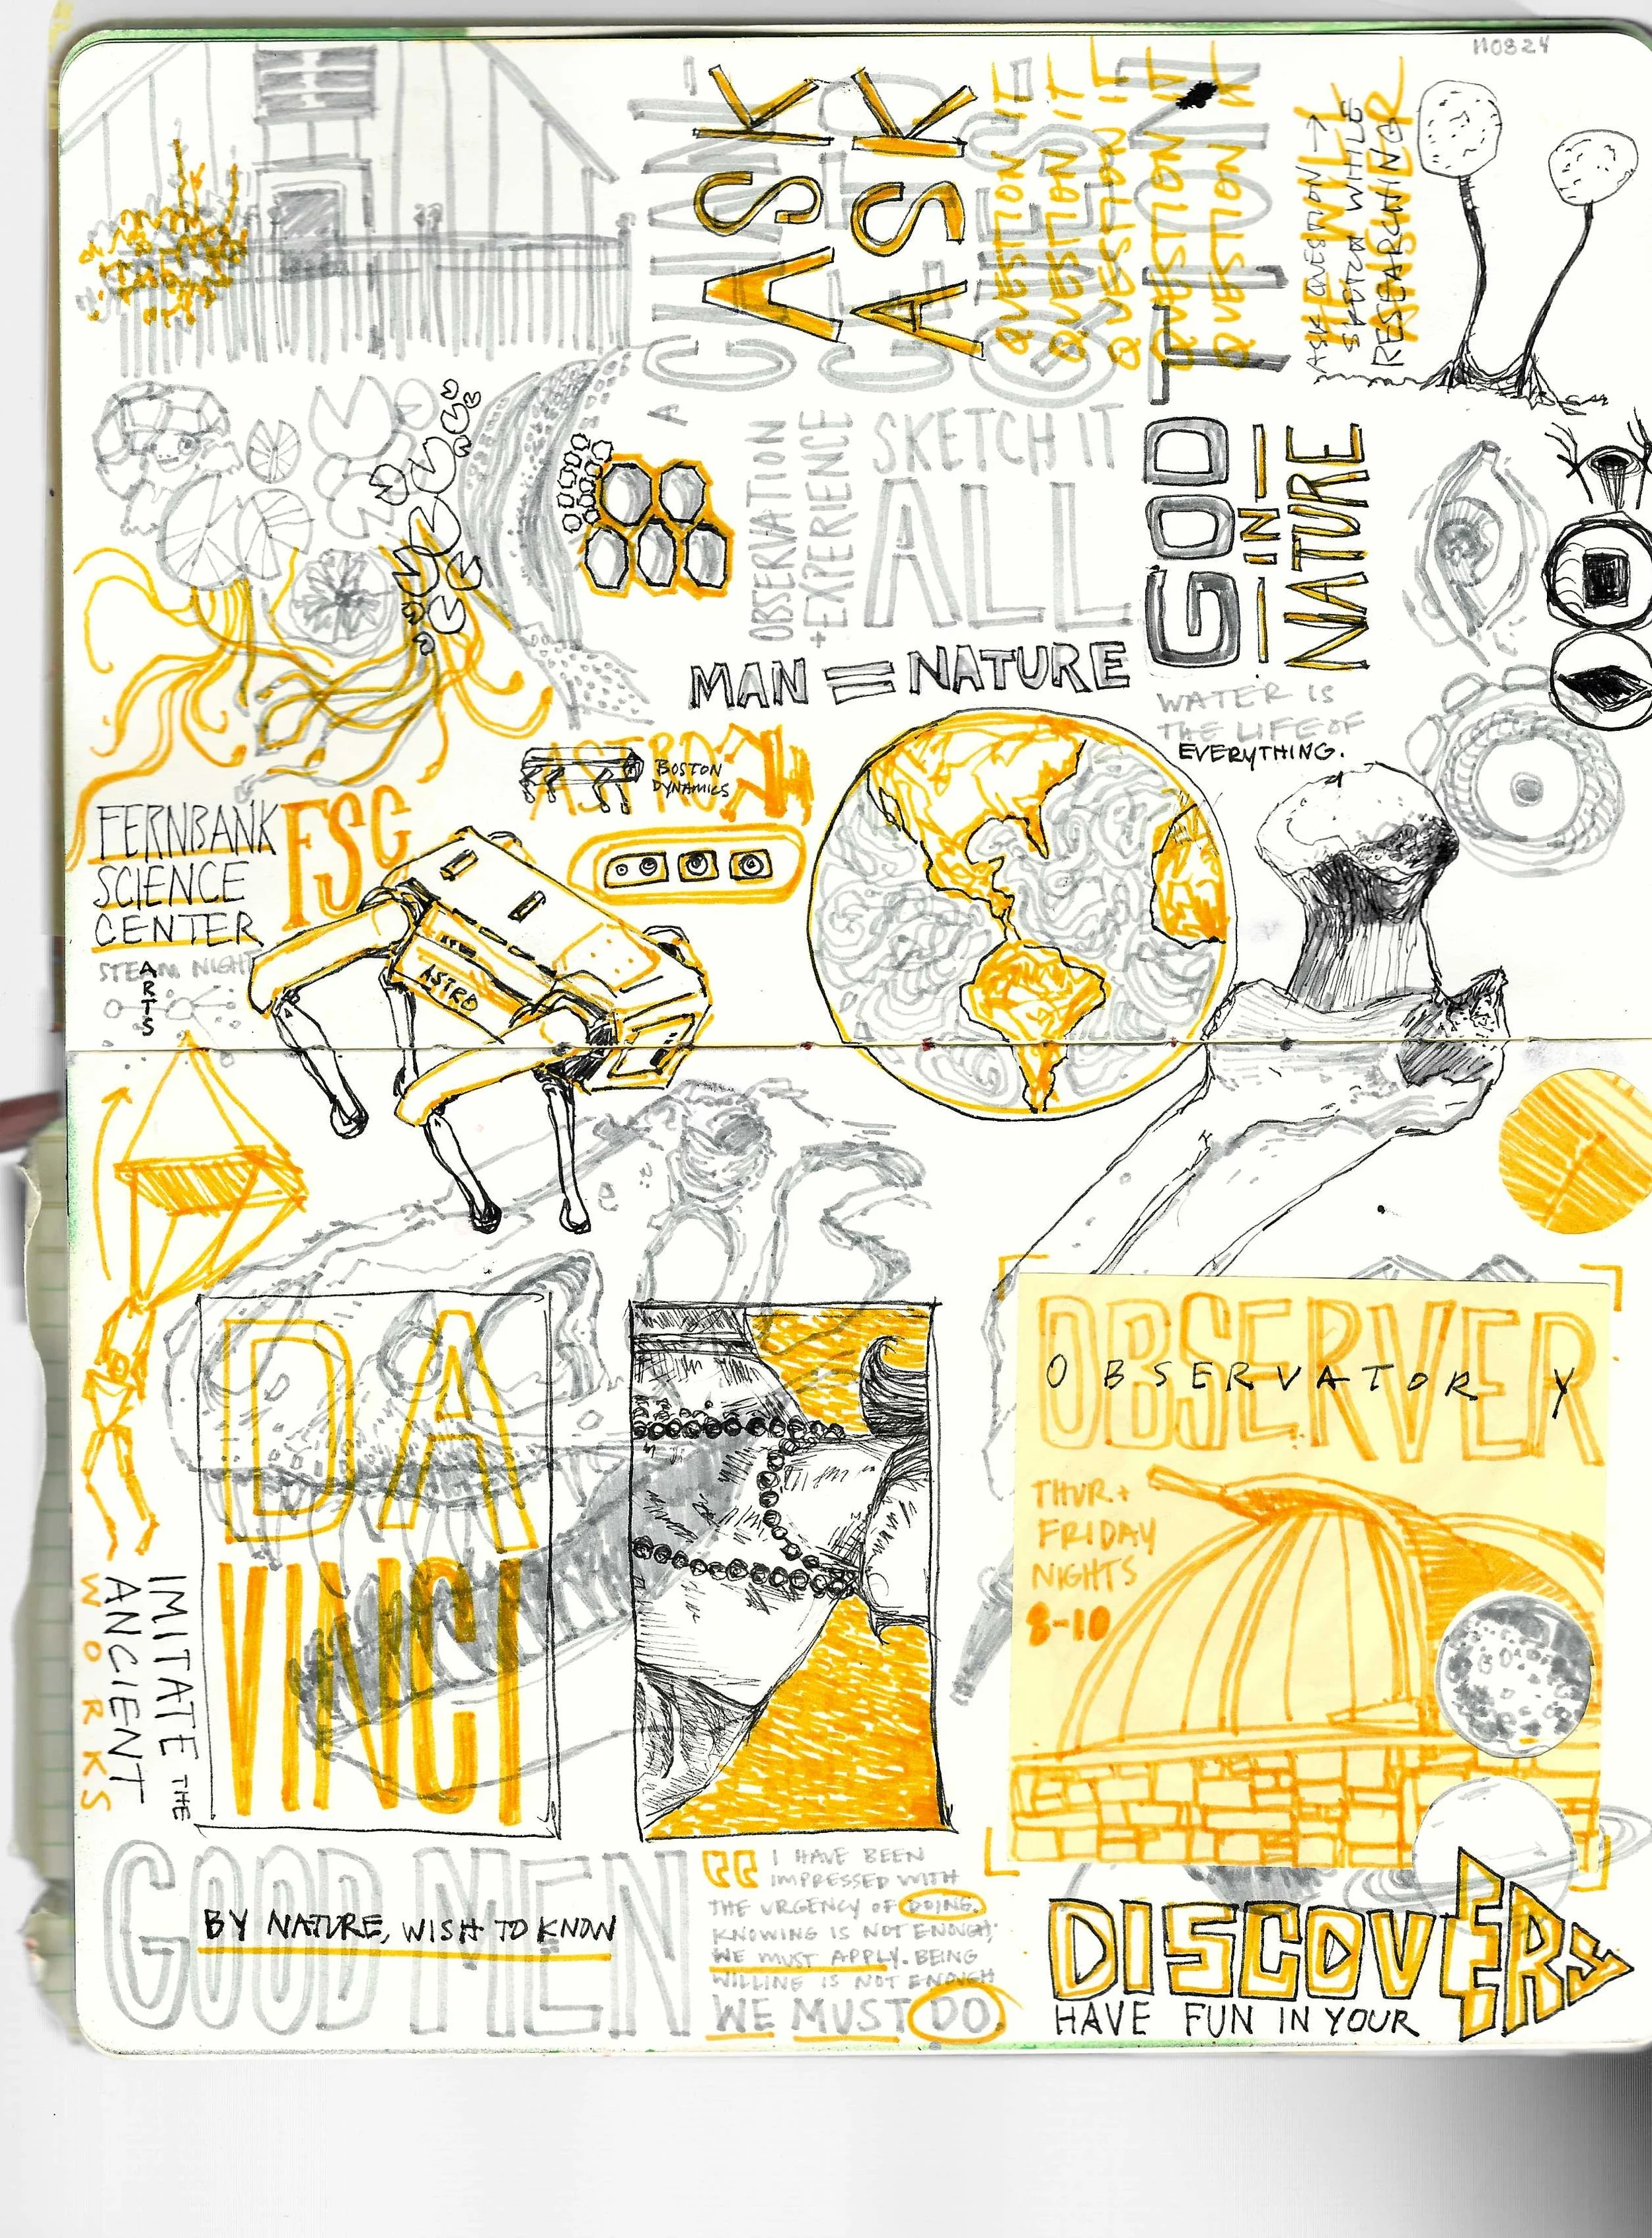 110824
A CHAN-
GED
QUES-
TION
ASK
ASK
QUESTION IT
QUESTION IT
QUESTION IT
QUESTION
QUESTION
ASK QUESTION →
SKETCH WHILE
RESEARCHING
OBSERVATION
+ EXPERIENCE
SKETCH IT
ALL
GOD
IN
NATURE
MAN = NATURE
WATER IS
THE LIFE OF
EVERYTHING.
ASTRO
BOSTON
DYNAMICS
FERNBANK
SCIENCE
CENTER
FSC
STEAM NIGHT
ARTS
ASTRO
DA
VINCI
IMITATE THE
ANCIENT
WORKS
OBSERVER
OBSERVATORY
THUR +
FRIDAY
NIGHTS
8-10
GOOD MEN
BY NATURE, WISH TO KNOW
“ I HAVE BEEN
IMPRESSED WITH
THE URGENCY OF DOING.
KNOWING IS NOT ENOUGH;
WE MUST APPLY. BEING
WILLING IS NOT ENOUGH
WE MUST DO.
DISCOVERY
HAVE FUN IN YOUR